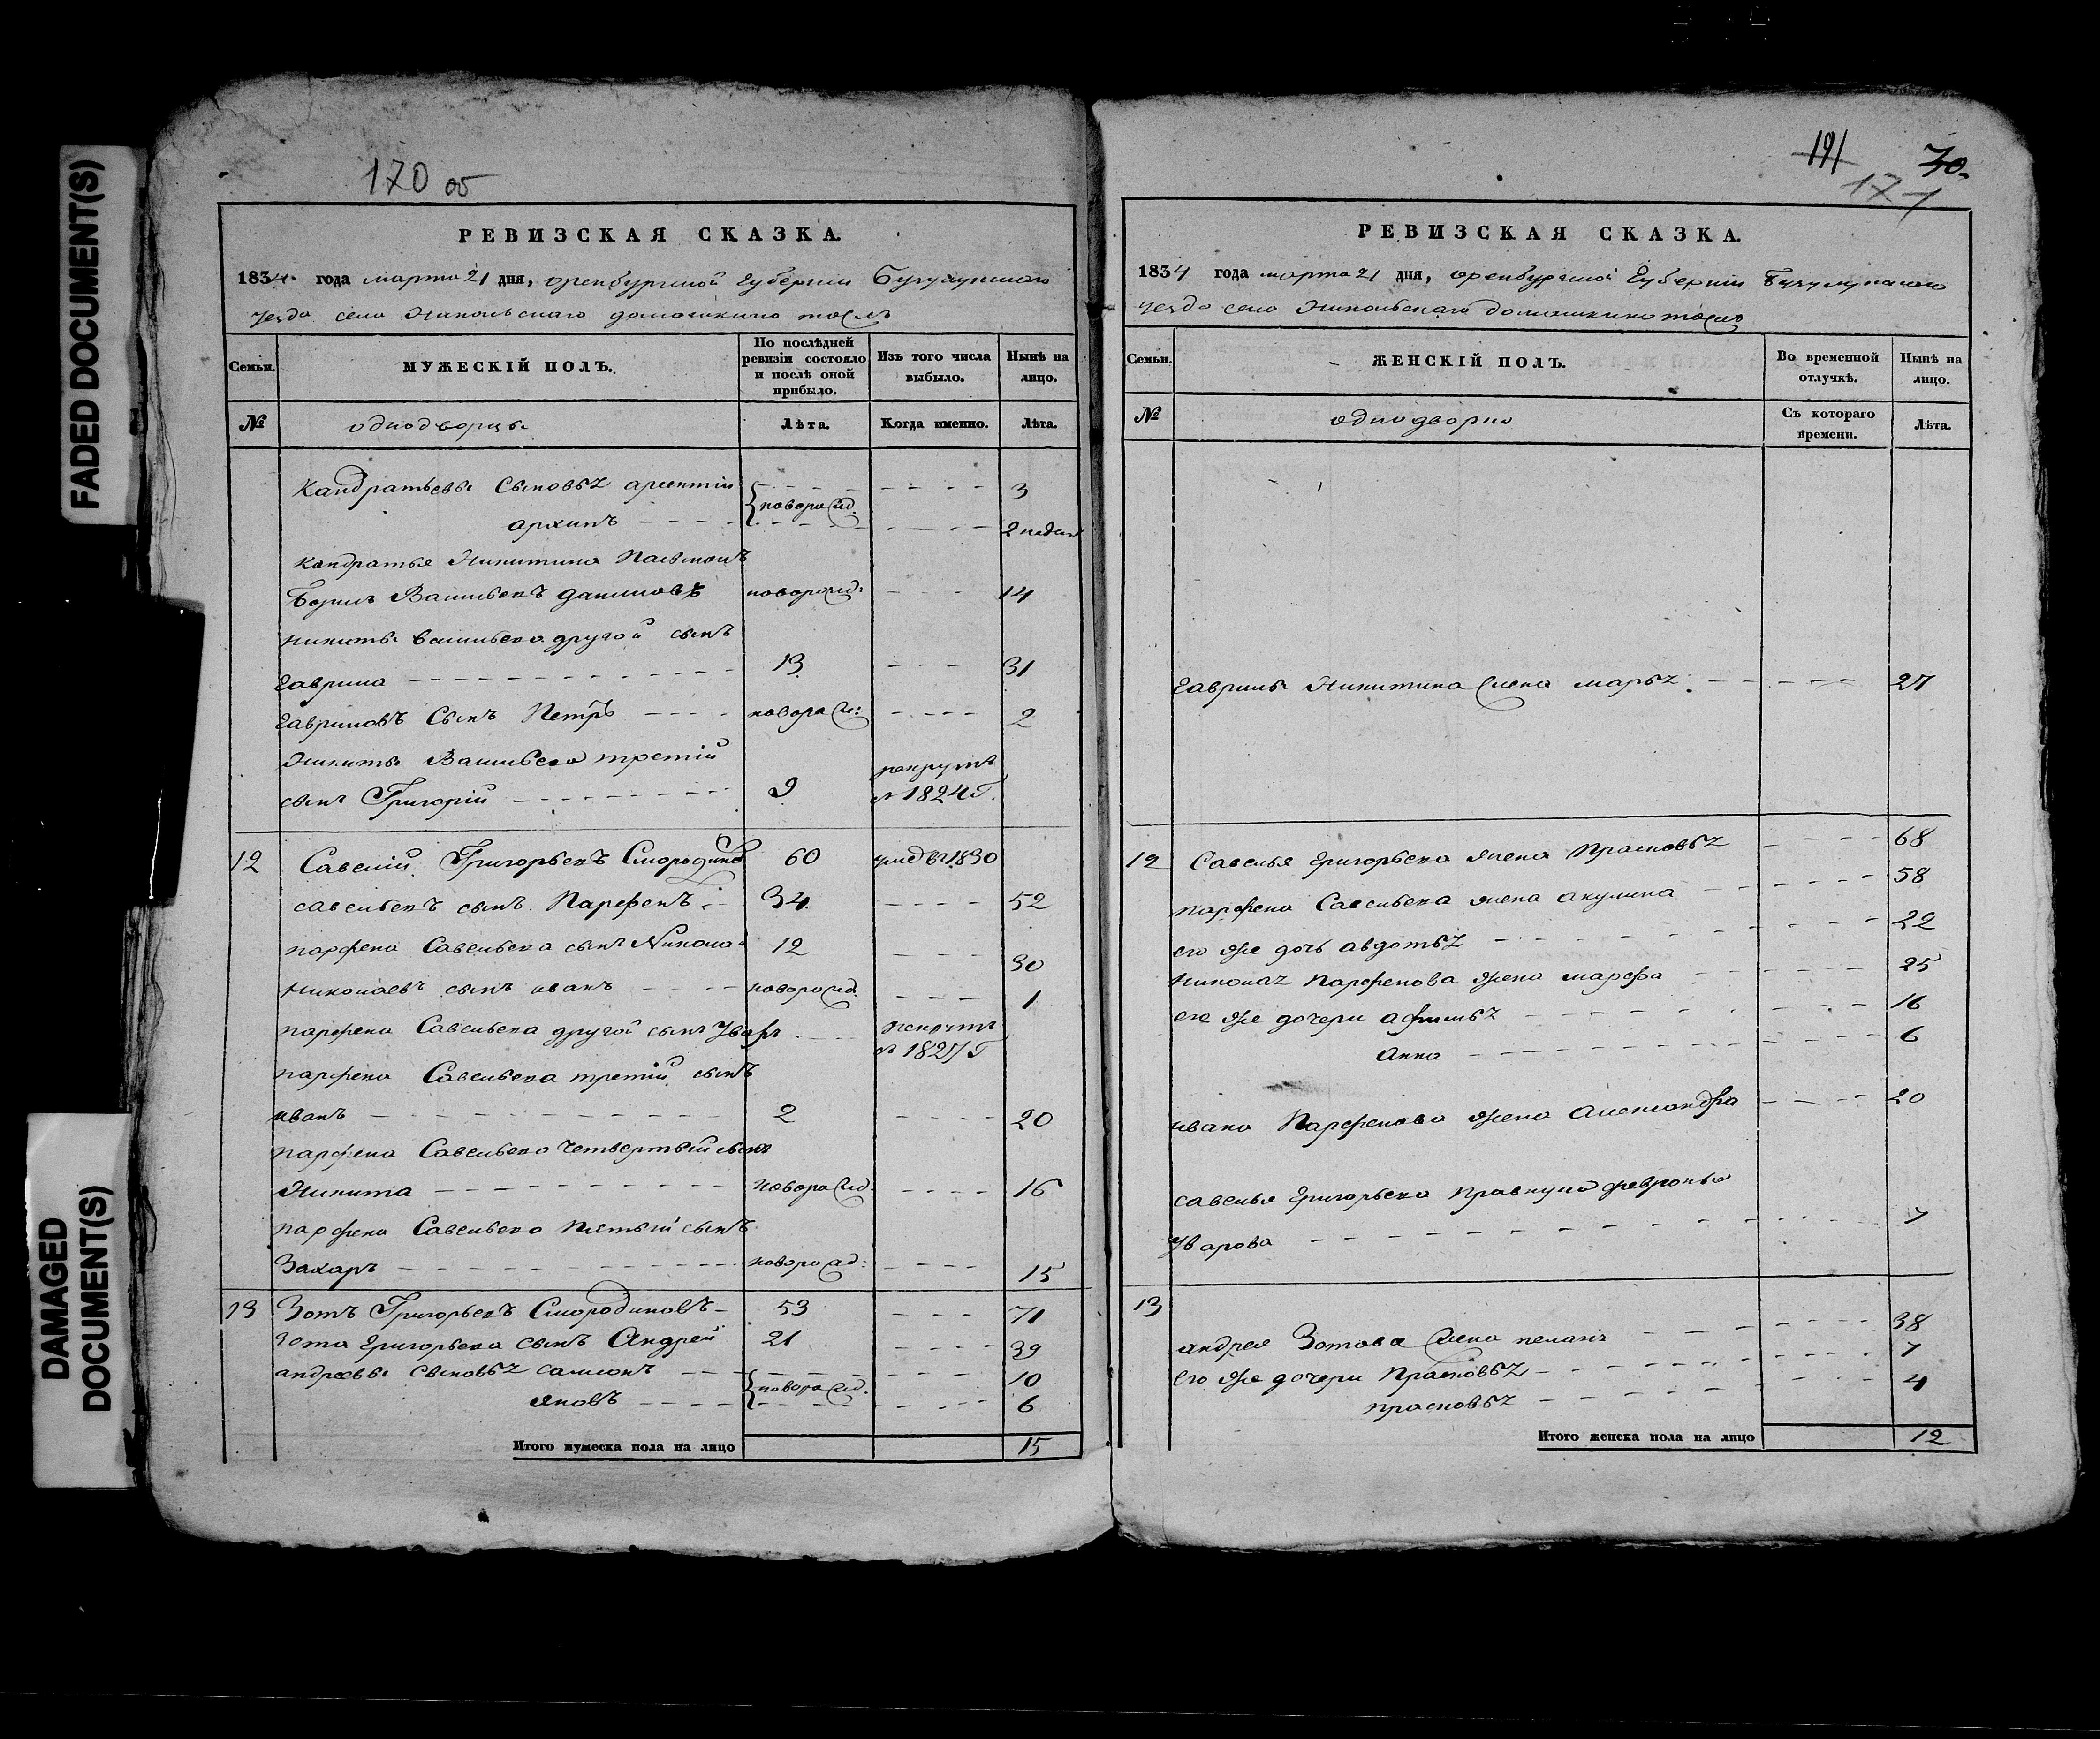 FADED DOCUMENT(S)
DAMAGED DOCUMENT(S)
170 об
РЕВИЗСКАЯ СКАЗКА.
1834 года марта 21 дня, оренбургской Губернии Бугурусланского
уезда села Никольскаго домашкино тожъ
Семьи. МУЖЕСКІЙ ПОЛЪ. По послѣдней ревизіи состояло и послѣ оной прибыло. Изъ того числа выбыло. Нынѣ на лицо.
№ однодворцы Лѣта. Когда именно. Лѣта.
Кандратьевы Сыновья арсентий 3
архипъ новорожд. 2 недел
Кандратья Никитина
Васильевъ даниловъ новорожд: 14
Никиты васильева другой сынъ
Гаврила 13 31
Гавриловъ Сынъ Петръ новорож: 2
Никиты Васильева третій
сынъ Григорій 9 рекрутъ в 1824 г.
12 Савелій Григорьевъ Смородинов 60 умер в 1830
савельевъ сынъ Парфенъ 34 52
парфена Савельева сынъ Николай 12 30
Николаевъ сынъ иванъ новорожд. 1
парфена Савельева другой сынъ Уваръ рекрутъ в 1827 г
парфена Савельева третій сынъ
иванъ 2 20
парфена Савельева четвертый сынъ
Никита новорожд. 16
парфена Савельева пятый сынъ
Захаръ новорожд: 15
13 Зотъ Григорьевъ Смородиновъ 53 71
Зота Григорьева сынъ Андрей 21 39
андреевы сыновья самсонъ 10
яковъ новорожд. 6
Итого мужеска пола на лицо 15
191 70.
171
РЕВИЗСКАЯ СКАЗКА.
1834 года марта 21 дня, оренбургской Губерніи Бугурусланского
уезда села Никольскаго домашкино тожъ
Семьи. ЖЕНСКІЙ ПОЛЪ. Во временной отлучкѣ. Нынѣ на лицо.
№ однодворки Съ котораго времени. Лѣта.
Гаврилы Никитина жена марья 27
12 Савелья Григорьева жена Прасковья 68
парфена Савельева жена акулина 58
его же дочь авдотья 22
Николая Парфенова жена марфа 25
его же дочери афимья 16
Анна 6
ивана Парфенова жена Александра 20
савелья Григорьева правнука февронья
Уварова 7
13
андрея Зотова жена пелагея 38
его же дочери Прасковья 7
прасковья 4
Итого женска пола на лицо 12